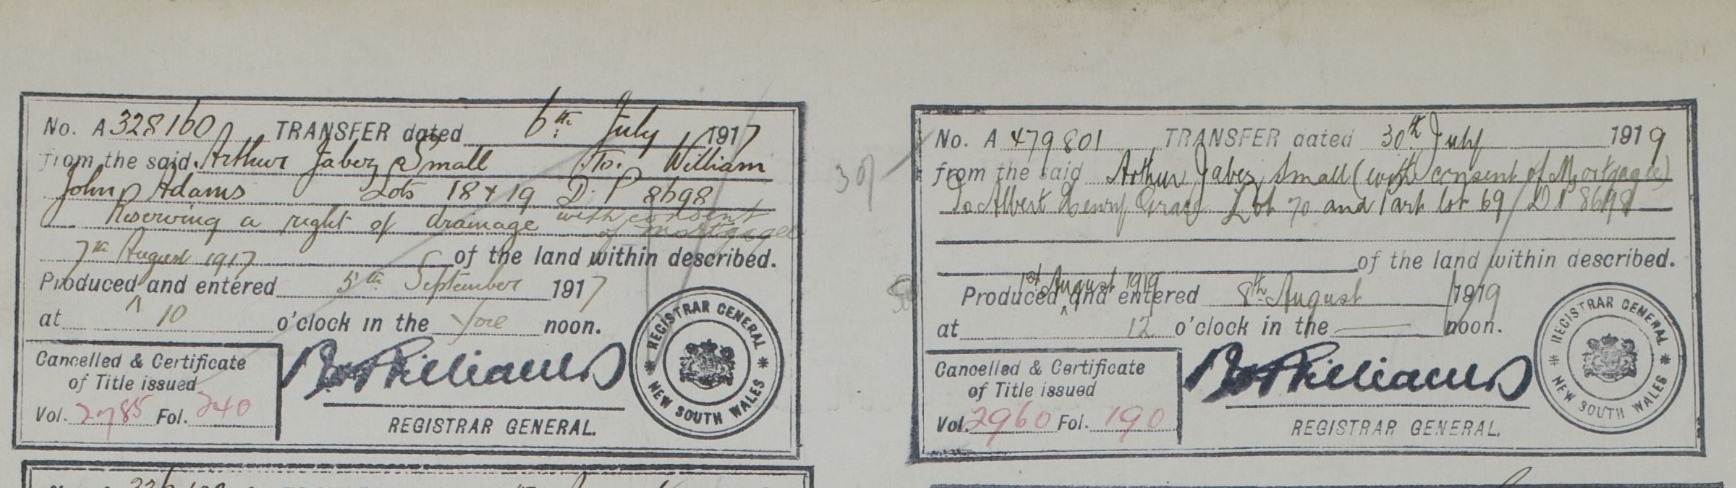 No. A 328160 TRANSFER dated 6th July 1917
from the said Arthur Jabez Small To William
John Adams Lots 18 & 19 D.P 8698
Reserving a right of drainage with consent
of mortgagee
7th August 1917 of the land within described.
Produced and entered 5th September 1917
at 10 o'clock in the fore noon.
Cancelled & Certificate
of Title issued
Vol. 2785 Fol. 240
REGISTRAR GENERAL.
REGISTRAR GENERAL
NEW SOUTH WALES
No. A 479801 TRANSFER dated 30th July 1919
from the said Arthur Jabez Small (with consent of Mortgagee)
To Albert Henry Lot 70 and part lot 69 DP 8698
of the land within described.
1st August 1919
Produced and entered 8th August 1919
at 12 o'clock in the noon.
Cancelled & Certificate
of Title issued
Vol. 2960 Fol. 190
REGISTRAR GENERAL.
REGISTRAR GENERAL
NEW SOUTH WALES